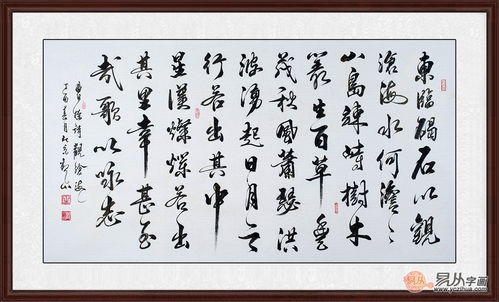 東臨碣石以觀
滄海水何澹々
山島竦峙樹木
叢生百草豐
茂秋風蕭瑟洪
波湧起日月之
行若出其中
星漢燦爛若出
其里幸甚至
哉歌以詠志
曹操詩觀滄海
丁酉春月
易从字画
www.yczihua.com